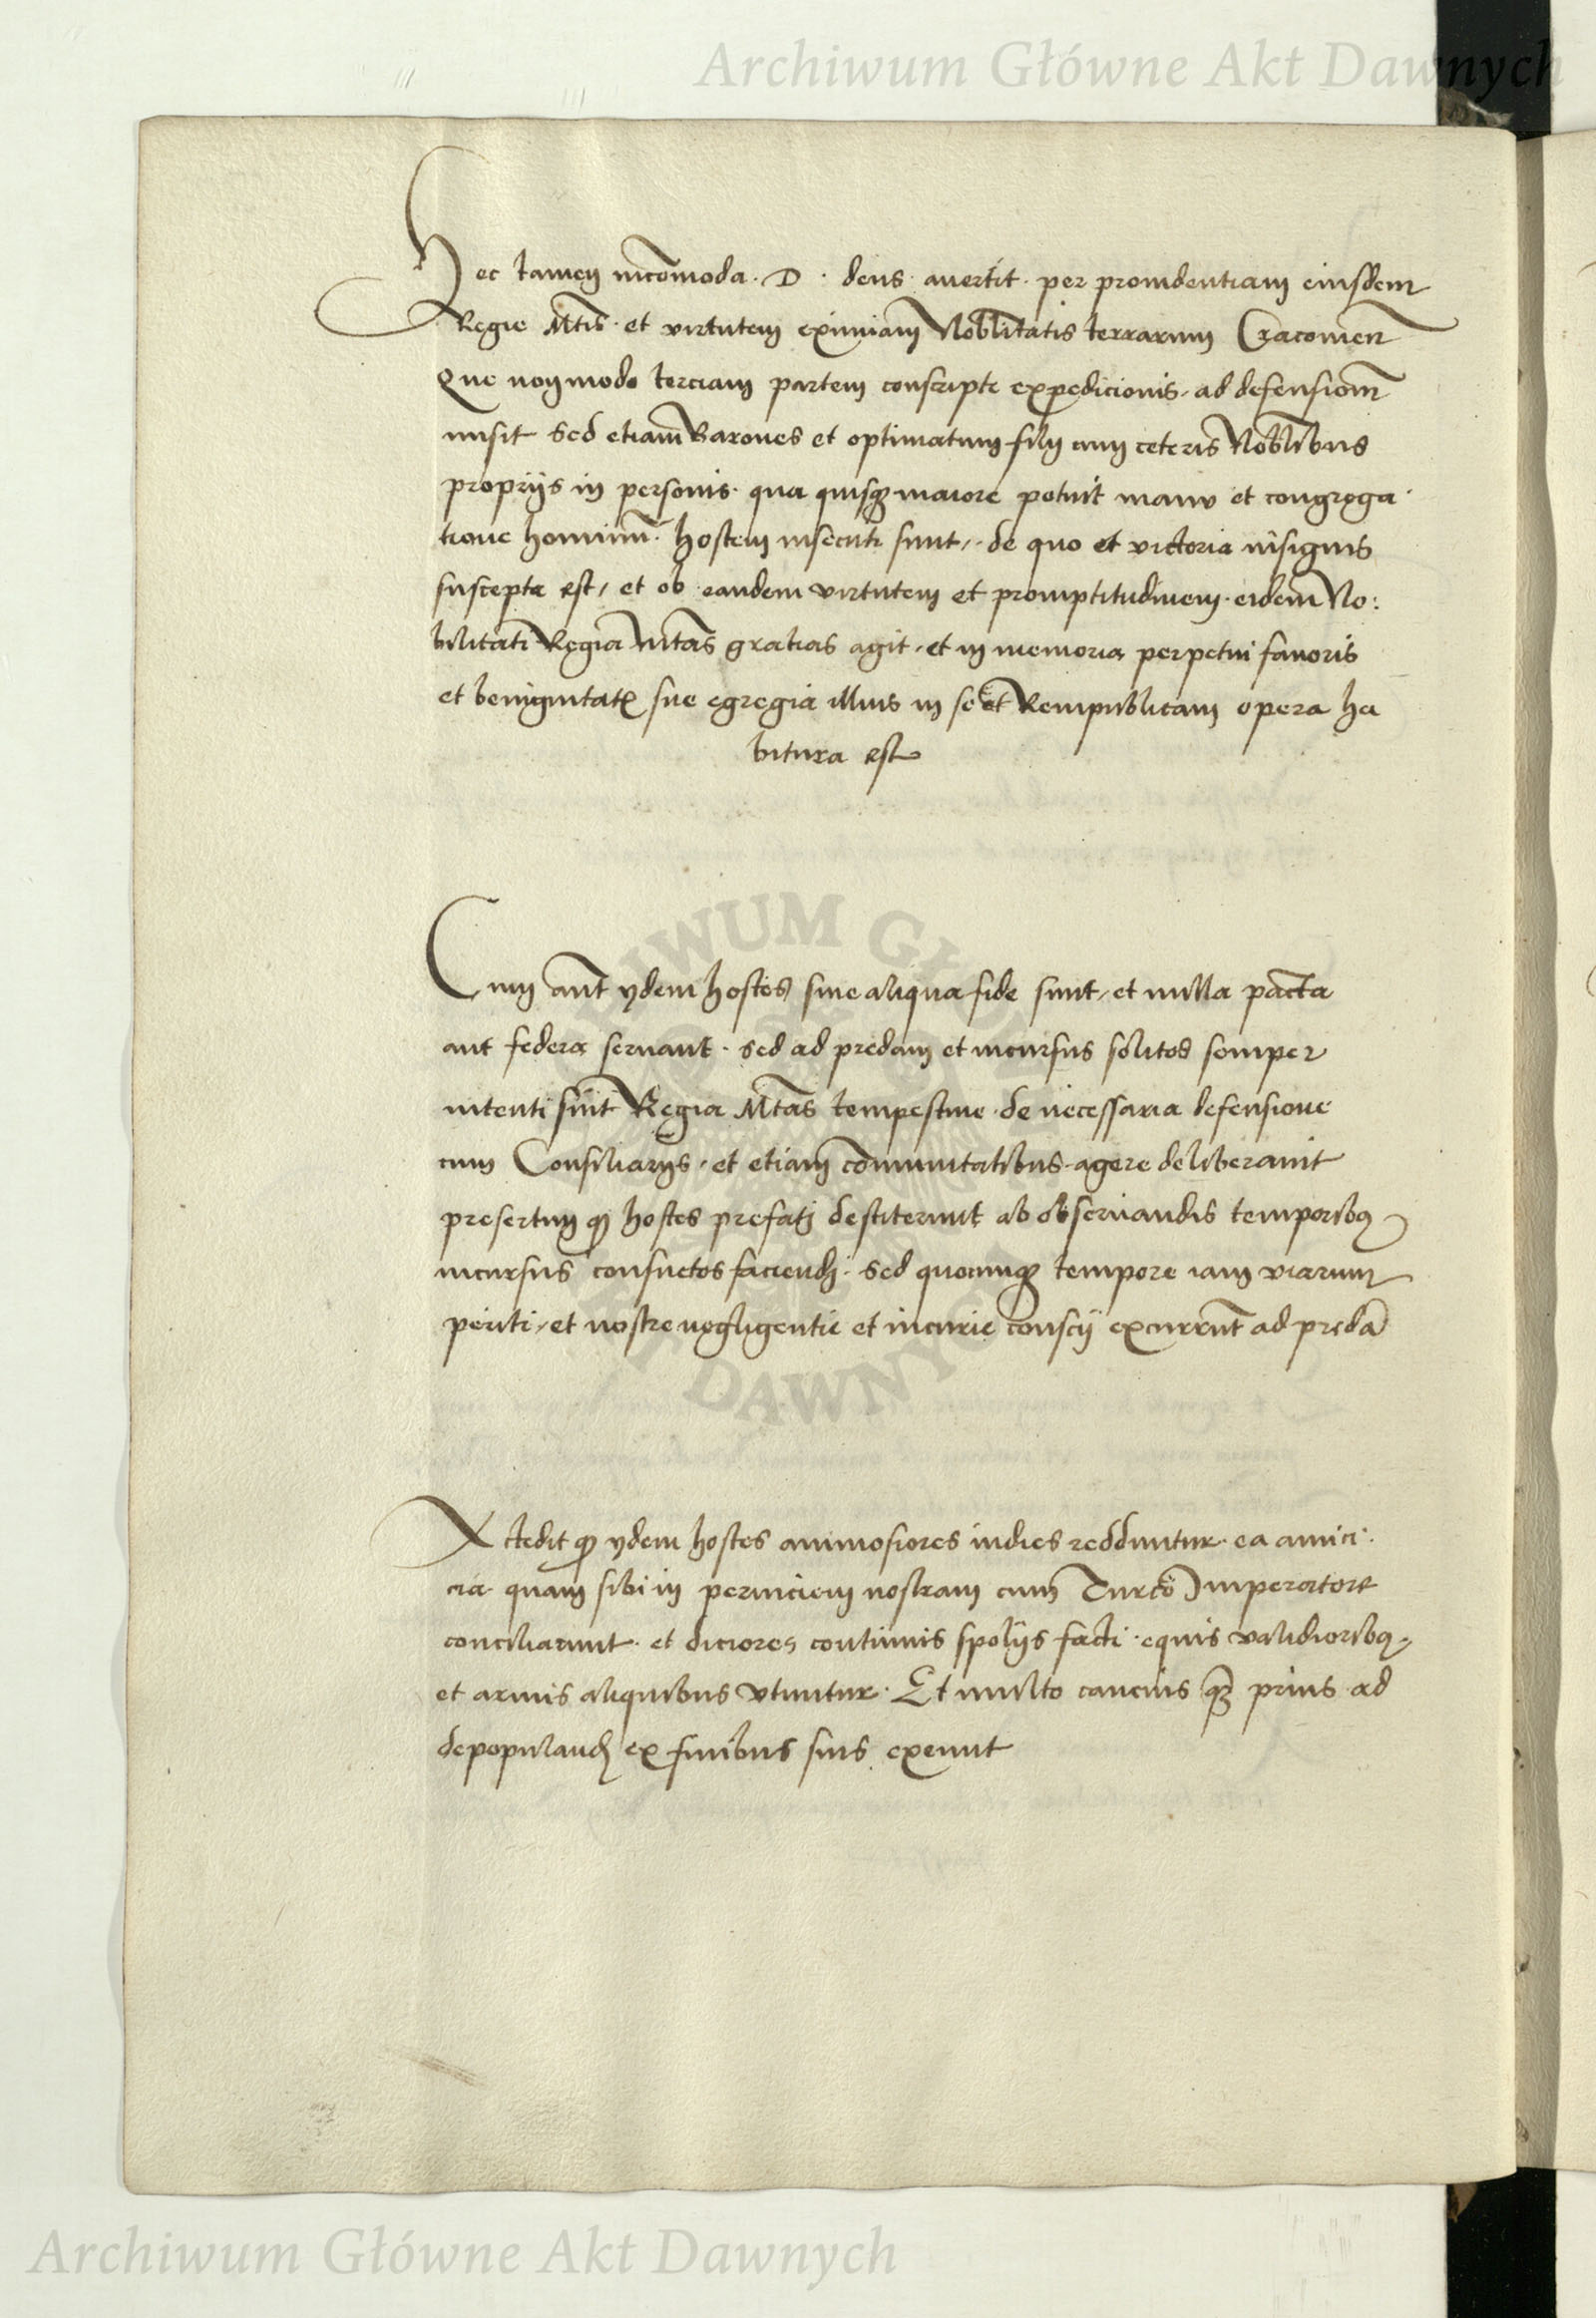 Archiwum Główne Akt Dawnych
Hec tamen incõmoda · D · deus · auertit · per prouidentiam eiusdem
Regie Mtis · et virtutem eximiam Nobłitatis terrarum Cracouien
Que non modo terciam partem conscripte expedicionis, ad defensionẽ
misit Sed etiam Barones et optimatum filij cum ceteris Nobłibus
proprijs in personis · qua quisqȝ maiore potuit manu et congrega ·
tione hominũ · hostem insecuti sunt, · de quo et victoria insignis
suscepta est, et ob eandem virtutem et promptitudinem · eidem No:
bilitati Regia Mtas gratias agit · et in memoria perpetui fauoris
et benignitatꝭ sue egregia illius in se et Rempublicam opera ha
bitura est
Cum aut̃ ydem hostes sine aliqua fide sunt, et nulla pacta
aut federa seruant · Sed ad predam et incursus solitos semper
intenti sint Regia Mtas tempestiue · de necessaria defensione
cum Consiliarijs, et etiam cõmunitatibus · agere deliberauit
presertim qꝫ hostes prefatj destiterunt ab obseruandis temporibꝫ
incursus consuetos faciendj · Sed quocunqꝫ tempore iam viarum
periti, et nostre negligentie et incurie conscij excurrũt ad predã
Accedit qꝫ ydem hostes animosiores indies redduntur · ea amici:
cia quam sibi in perniciem nostram cum Turco Imperatore
conciliarunt · et diciores continuis spolijs facti · equis validioribꝫ
et armis aliquibus vtuntur · Et multo caucius qꝫ prius ad
depopulandꝫ ex finibus suis exeunt
ARCHIWUM GŁÓWNE AKT DAWNYCH
Archiwum Główne Akt Dawnych